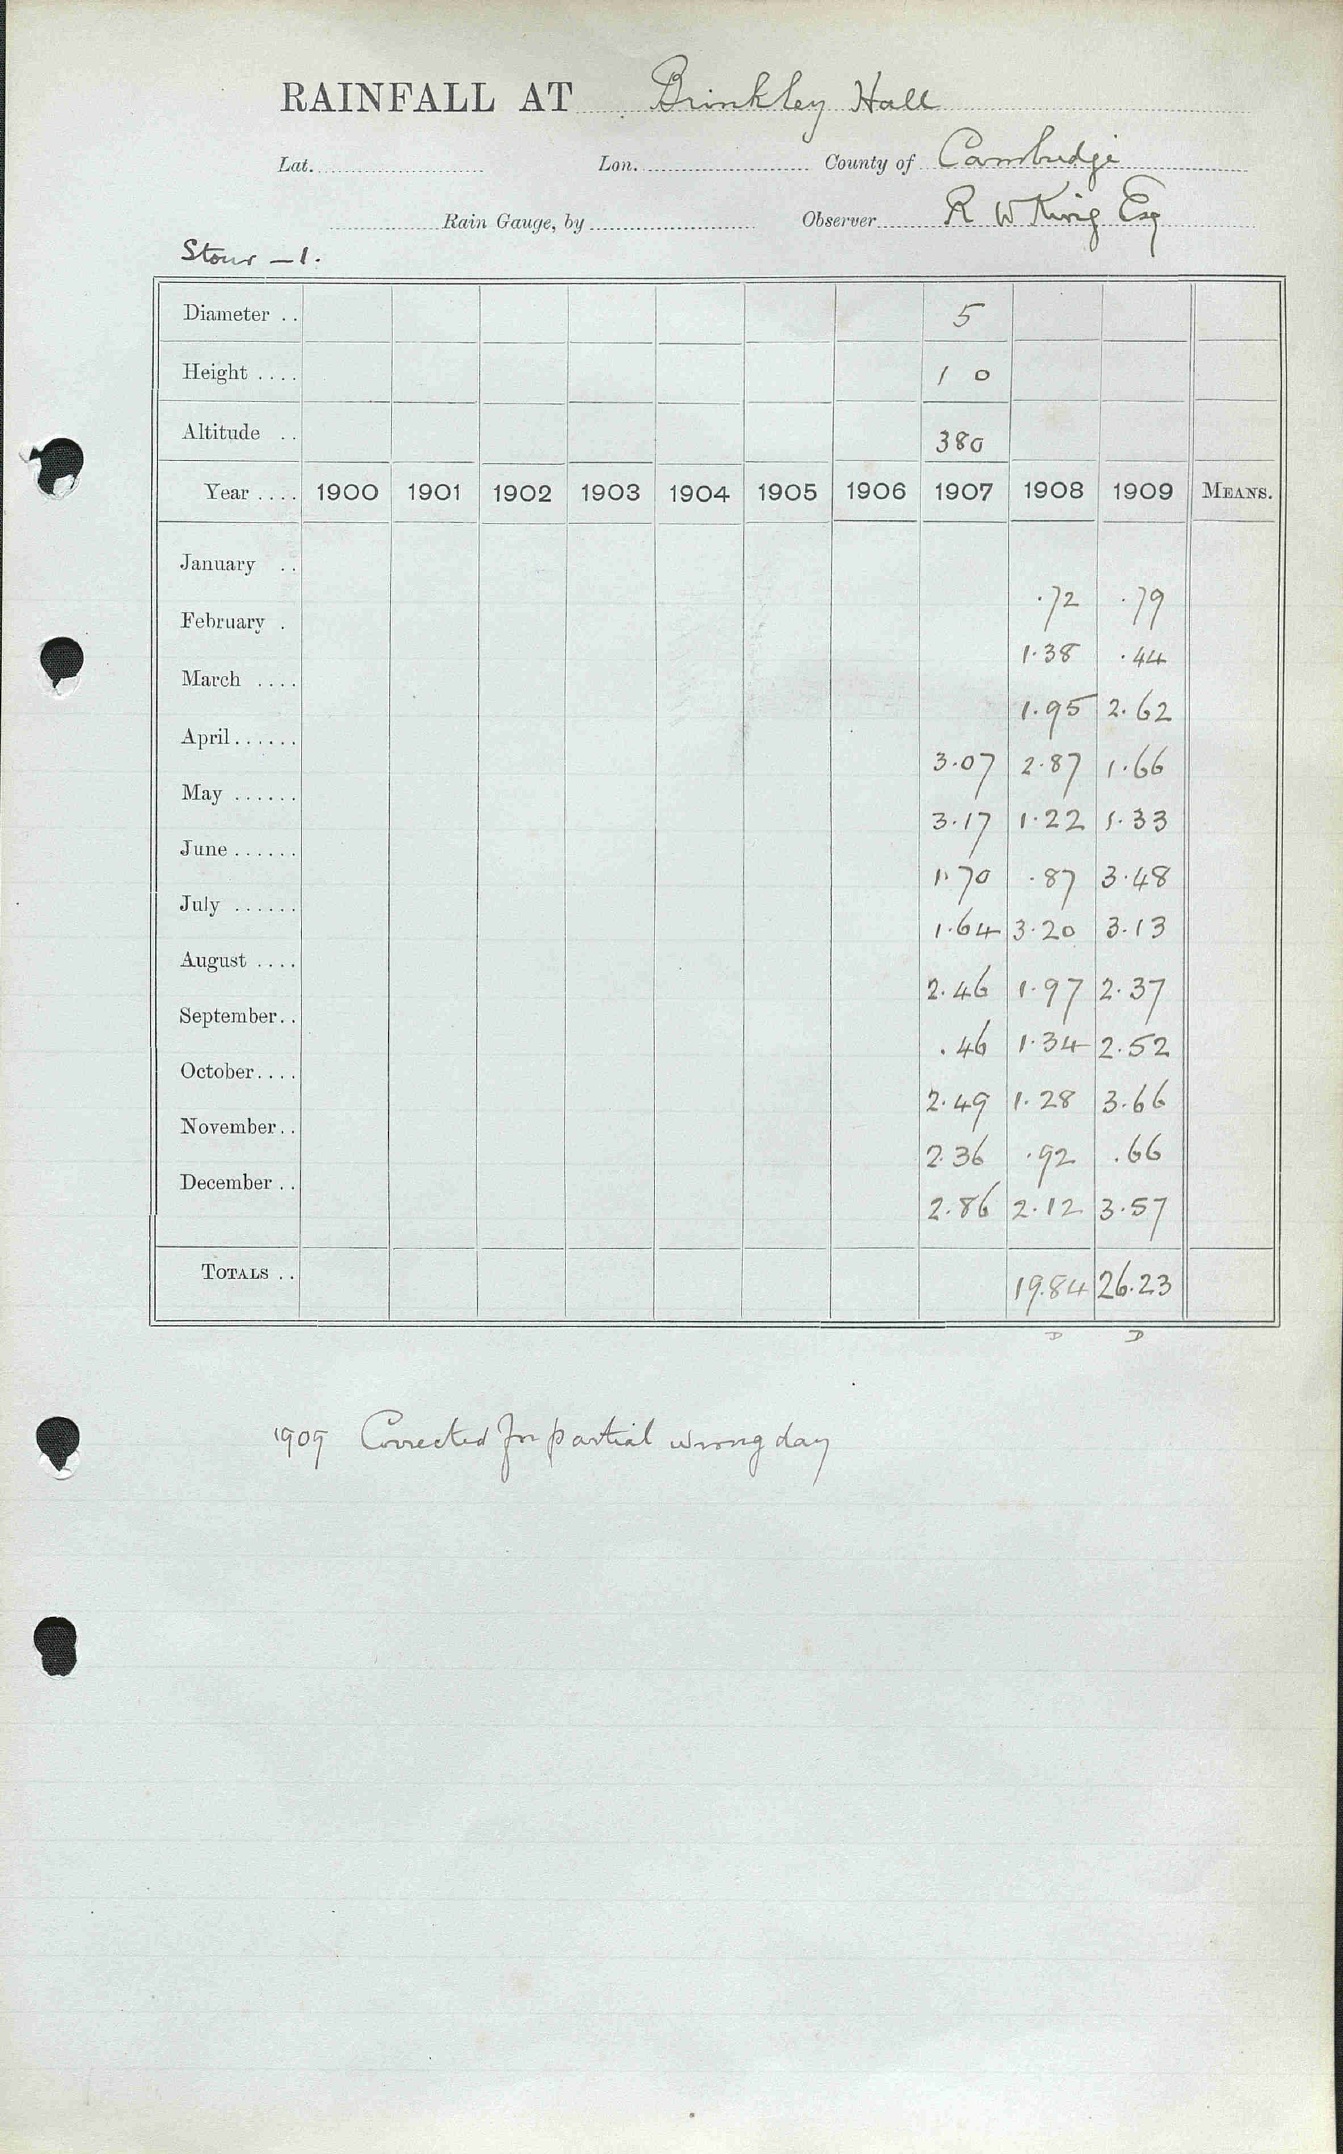 RAINFALL AT Brinkley Hall
Lat. Lon. County of Cambridge
Rain Gauge, by Observer R W King Esq
Stour – 1.
Diameter .. 5
Height .... 1 0
Altitude .. 380
Year .... 1900 1901 1902 1903 1904 1905 1906 1907 1908 1909 MEANS.
January .. .72 .79
February . 1.38 .44
March .... 1.95 2.62
April...... 3.07 2.87 1.66
May ...... 3.17 1.22 1.33
June ...... 1.70 .87 3.48
July ...... 1.64 3.20 3.13
August .... 2.46 1.97 2.37
September.. .46 1.34 2.52
October.... 2.49 1.28 3.66
November.. 2.36 .92 .66
December .. 2.86 2.12 3.57
TOTALS .. 19.84 26.23
D D
1909 Corrected for partial wrong day